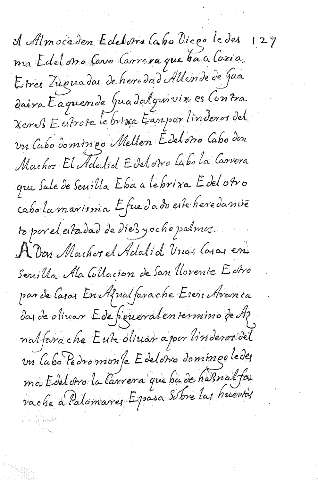 A Almocaden E del otro Cabo Diego ledes 127
ma E del otro Cavo Carrera que ba a Coria
E tres Zugadas de heredad Allende de Gua
daira E aquende Guadalquivir es Contra
Xerez E entrote lebrixa E an por linderos del
un Cabo domingo Mellen E del otro Cabo don
Machos El Adalid E del otro Cabo la Carrera
que Sale de Sevilla E ba a lebrixa E del otro
cabo la marisma E fue dado este heredamie
to por el estadad de diez y ocho palmos
A Don Machos el Adalid Unas Casas en
Sevilla A la Collacion de San llorente E otro
par de Casas En Aznalfarache E seis Aranca
das de olivar E de figueral en termino de Az
nalfarache E este olivar a por linderos del
un Cabo Pedro monse E del otro domingo ledes
ma E del otro la Carrera que ba de hasnalfa
rache a Palomares E pasa Sobre las huertas